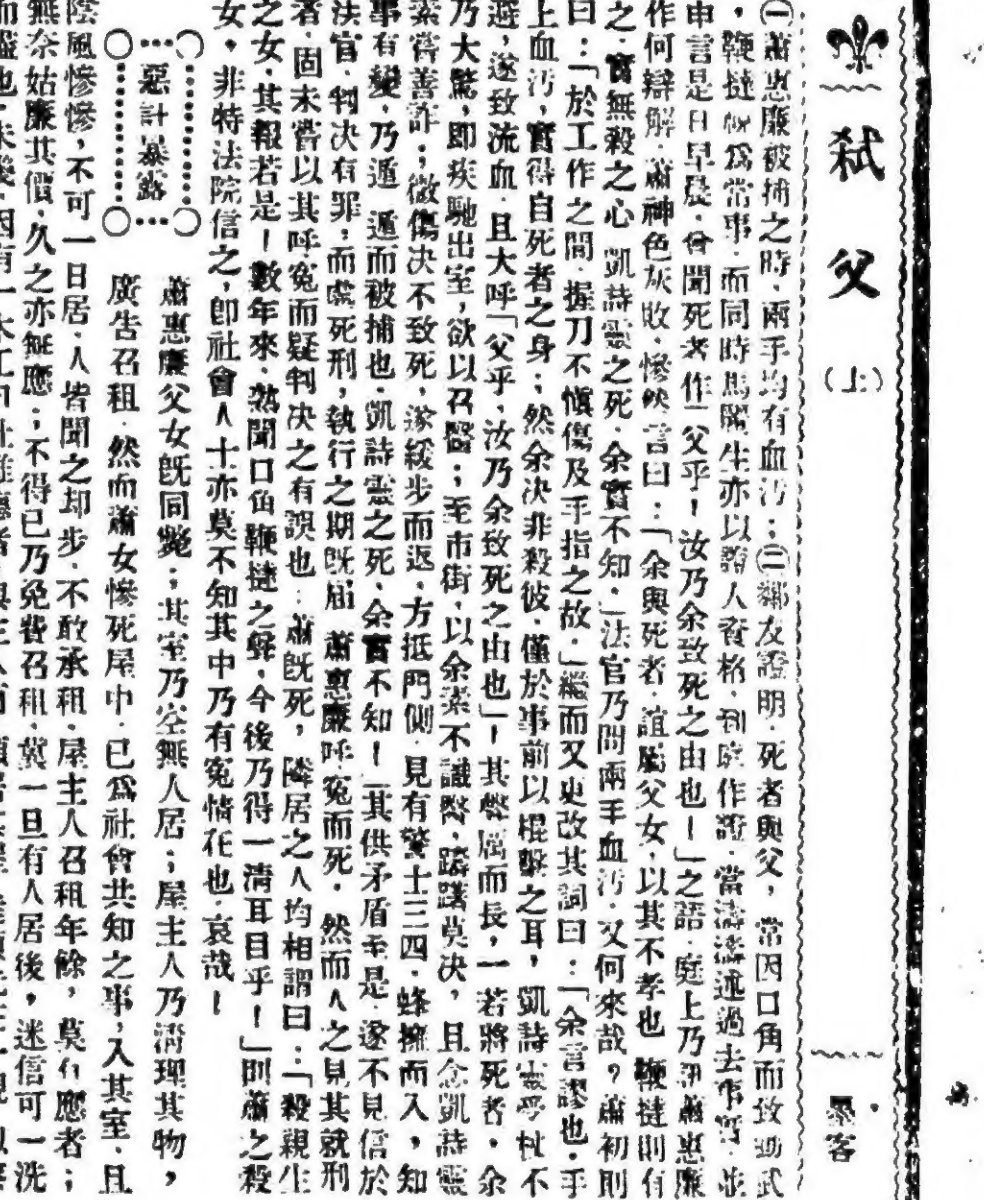 弒父(上)
墨客
㈠蕭惠廉被捕之時,兩手均有血汚;㈡鄰友證明,死者與父,常因口角而致動武
,鞭撻視爲常事,而同時馬騰生亦以證人資格,到庭作證,當濤濤述過去事實,並
申言是日早晨,曾聞死者作「父乎!汝乃余致死之由也!」之語,庭上乃訊蕭惠廉
作何辯解,蕭神色灰敗,慘然言曰:「余與死者,誼屬父女,以其不孝也,鞭撻則有
之,實無殺之心,凱詩靈之死,余實不知。」法官乃問兩手血汚,又何來哉?蕭初則
曰:「於工作之間,握刀不愼傷及手指之故。」繼而又更改其詞曰:「余言謬也,手
上血汚,實得自死者之身;然余决非殺彼,僅於事前以棍擊之耳,凱詩靈受杖不
避,遂致流血,且大呼「父乎,汝乃余致死之由也」!其聲厲而長,一若將死者,余
乃大驚,卽疾馳出室,欲以召醫;至市街,以余素不識醫,躊躇莫决,且念凱詩靈
素嘗善詐,微傷决不致死,遂緩步而返,方抵門側,見有警士三四,蜂擁而入,知
事有變,乃遁,遁而被捕也,凱詩靈之死,余實不知!」其供矛盾至是,遂不見信於
法官,判决有罪,而處死刑,執行之期旣屆,蕭惠廉呼冤而死,然而人之見其就刑
者,固未嘗以其呼冤而疑判决之有誤也,蕭旣死,隣居之人均相謂曰:「殺親生
之女,其報若是!數年來,熟聞口角鞭撻之聲,今後乃得一清耳目乎!」則蕭之殺
女,非特法院信之,卽社會人士亦莫不知其中乃有冤情在也,哀哉!
惡計暴露
蕭惠廉父女旣同斃;其室乃空無人居;屋主人乃清理其物,
廣告召租,然而蕭女慘死屋中,已爲社會共知之事,入其室,且
陰風慘慘,不可一日居,人皆聞之却步,不敢承租,屋主人召租年餘,莫有應者;
無奈姑廉其價,久之亦無應;不得已乃免費召租,冀一旦有人居後,迷信可一洗